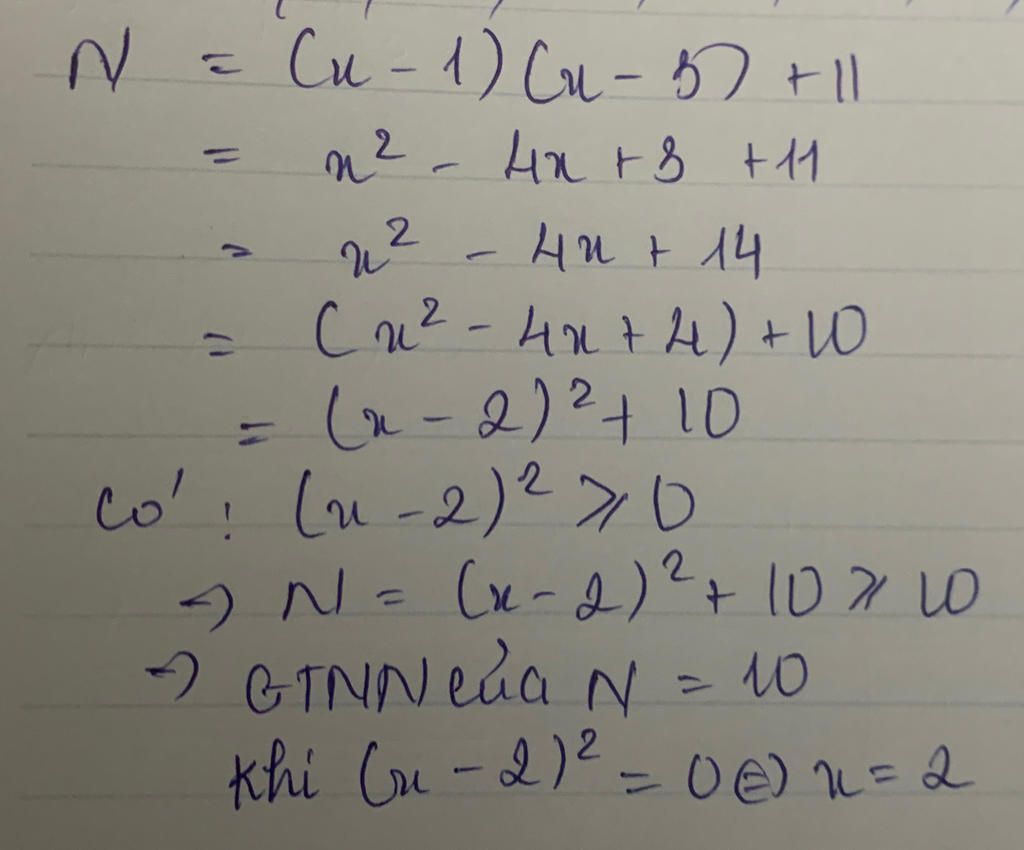 N = (x - 1)(x - 3) + 11
= x² - 4x + 3 + 11
= x² - 4x + 14
= (x² - 4x + 4) + 10
= (x - 2)² + 10
Có : (x - 2)² ⩾ 0
→ N = (x - 2)² + 10 ⩾ 10
→ GTNN của N = 10
khi (x - 2)² = 0 ⇔ x = 2